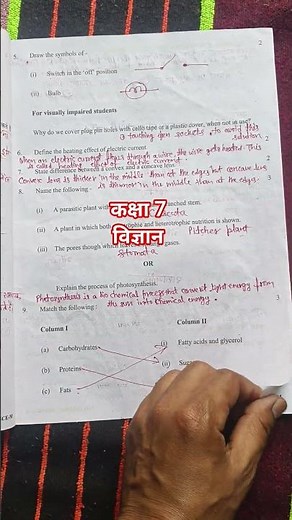 5. Draw the symbols of - 2
(i) Switch in the 'off' position
(ii) Bulb
For visually impaired students
Why do we cover plug pin holes with cello tape or a plastic cover, when not in use?
touching the sockets to avoid this
6. Define the heating effect of electric current. 2
When an electric current through a wire, the wire gets heated. This
is called heating effect of electric current.
7. State difference between a convex and a concave lens. 2
Convex lens is thicker in the middle than at the edges but concave lens
is thinner in the middle than at the edges. 3
8. Name the following
(i) A parasitic plant with stem.
(ii) A plant in which both autotrophic and heterotrophic nutrition is shown.
Pitcher plant
(iii) The pores though which gases.
Stomata
कक्षा 7
विज्ञान
OR
Explain the process of photosynthesis.
Photosynthesis is a bio chemical that convert light energy from
the sun into chemical energy.
9. Match the following: 3
Column I Column II
(a) Carbohydrates (i) Fatty acids and glycerol
(b) Proteins (ii)
(c) Fats